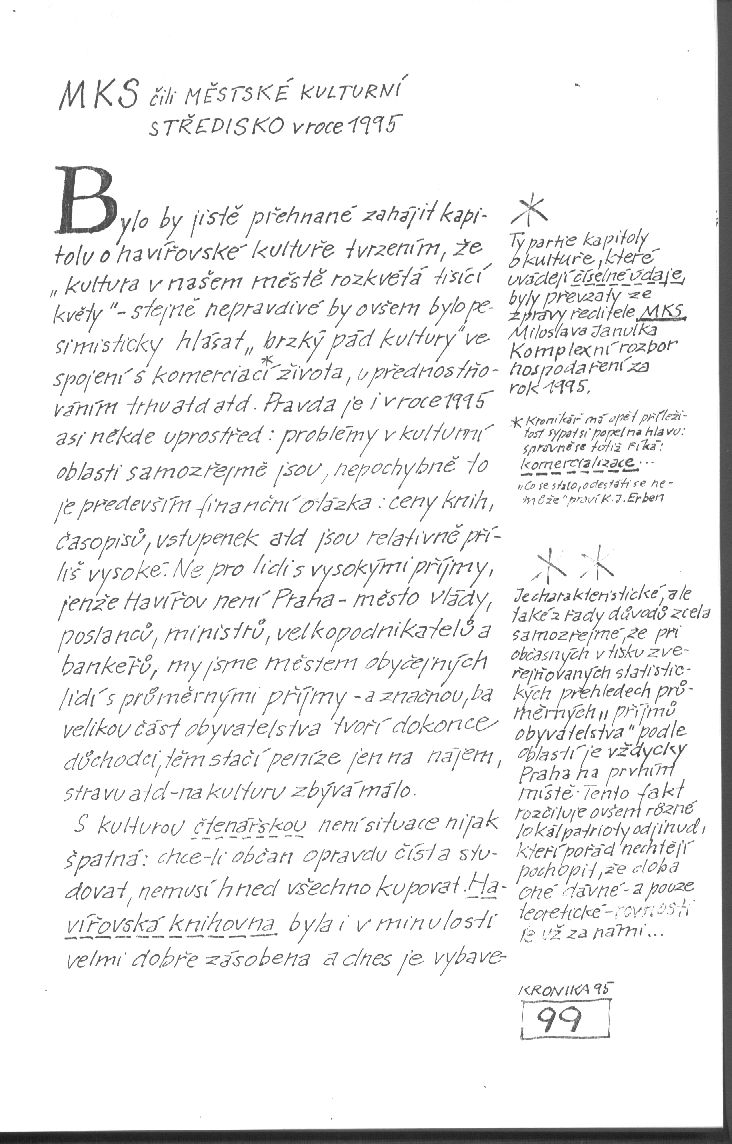 MKS čili MĚSTSKÉ KULTURNÍ
STŘEDISKO v roce 1995
Bylo by jistě přehnané zahájit kapi-
tolu o havířovské kultuře tvrzením, že
„kultura v našem městě rozkvétá tisící
květy" - stejně nepravdivé by ovšem bylo pe-
simisticky hlásat „brzký pád kultury" ve
spojení s komerciací* života, upřednostňo-
váním trhu atd atd. Pravda je i v roce 1995
asi někde uprostřed: problémy v kulturní
oblasti samozřejmě jsou, nepochybně to
je především finanční otázka: ceny knih,
časopisů, vstupenek atd jsou relativně pří-
liš vysoké. Ne pro lidi s vysokými příjmy,
jenže Havířov není Praha - město vlády,
poslanců, ministrů, velkopodnikatelů a
bankéřů, my jsme městem obyčejných
lidí s průměrnými příjmy - a značnou, ba
velikou část obyvatelstva tvoří dokonce
důchodci, těm stačí peníze jen na nájem,
stravu atd - na kulturu zbývá málo.
S kulturou čtenářskou není situace nijak
špatná: chce-li občan opravdu číst a stu-
dovat, nemusí hned všechno kupovat. Ha-
vířovská knihovna byla i v minulosti
velmi dobře zásobena a dnes je vybave-
*
Ty partie kapitoly
o kultuře, které
uvádějí číselné údaje,
byly převzaty ze
zprávy ředitele MKS
Miloslava Janulka
Komplexní rozbor
hospodaření za
rok 1995.
* Kronikář má opět příleži-
tost sypat si popel na hlavu:
správně se totiž říká:
komercializace...
„Co se stalo, odestáti se ne-
může" praví K.J.Erben
* *
Je charakteristické, ale
také z řady důvodů zcela
samozřejmé, že při
občasných v tisku zve-
řejňovaných statistic-
kých přehledech prů-
měrných „příjmů
obyvatelstva" podle
oblastí je vždycky
Praha na prvním
místě. Tento fakt
rozčiluje ovšem různé
lokálpatrioty odjinud,
kteří pořád nechtějí
pochopit, že doba
oné dávné - a pouze
teoretické - rovnosti
je už za námi...
KRONIKA 95
99